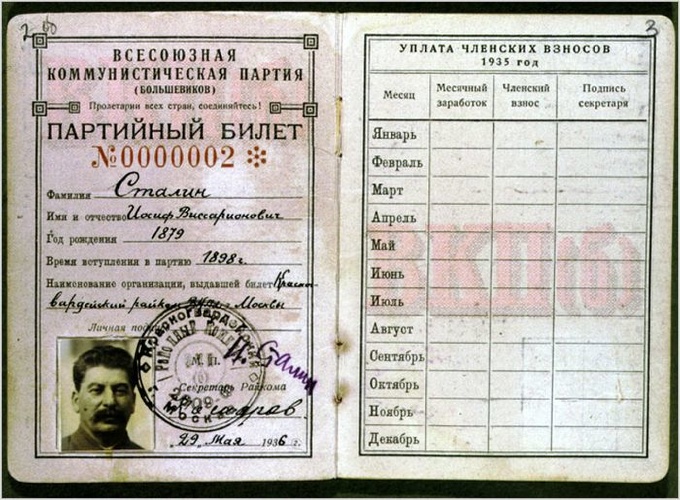 2
3
ВСЕСОЮЗНАЯ
КОММУНИСТИЧЕСКАЯ ПАРТИЯ
(БОЛЬШЕВИКОВ)
Пролетарии всех стран, соединяйтесь!
ПАРТИЙНЫЙ БИЛЕТ
№0000002
Фамилия Сталин
Имя и отчество Иосиф Виссарионович
Год рождения 1879
Время вступления в партию 1898 г.
Наименование организации, выдавшей билет Красно-
вардейский райком г. Москвы
Личная
М. П.
Сталин
Секретарь Райкома
"29" Мая 1936 г.
УПЛАТА ЧЛЕНСКИХ ВЗНОСОВ
1935 год
Месяц
Месячный заработок
Членский взнос
Подпись секретаря
Январь
Февраль
Март
Апрель
Май
Июнь
Июль
Август
Сентябрь
Октябрь
Ноябрь
Декабрь
ВКП(б)